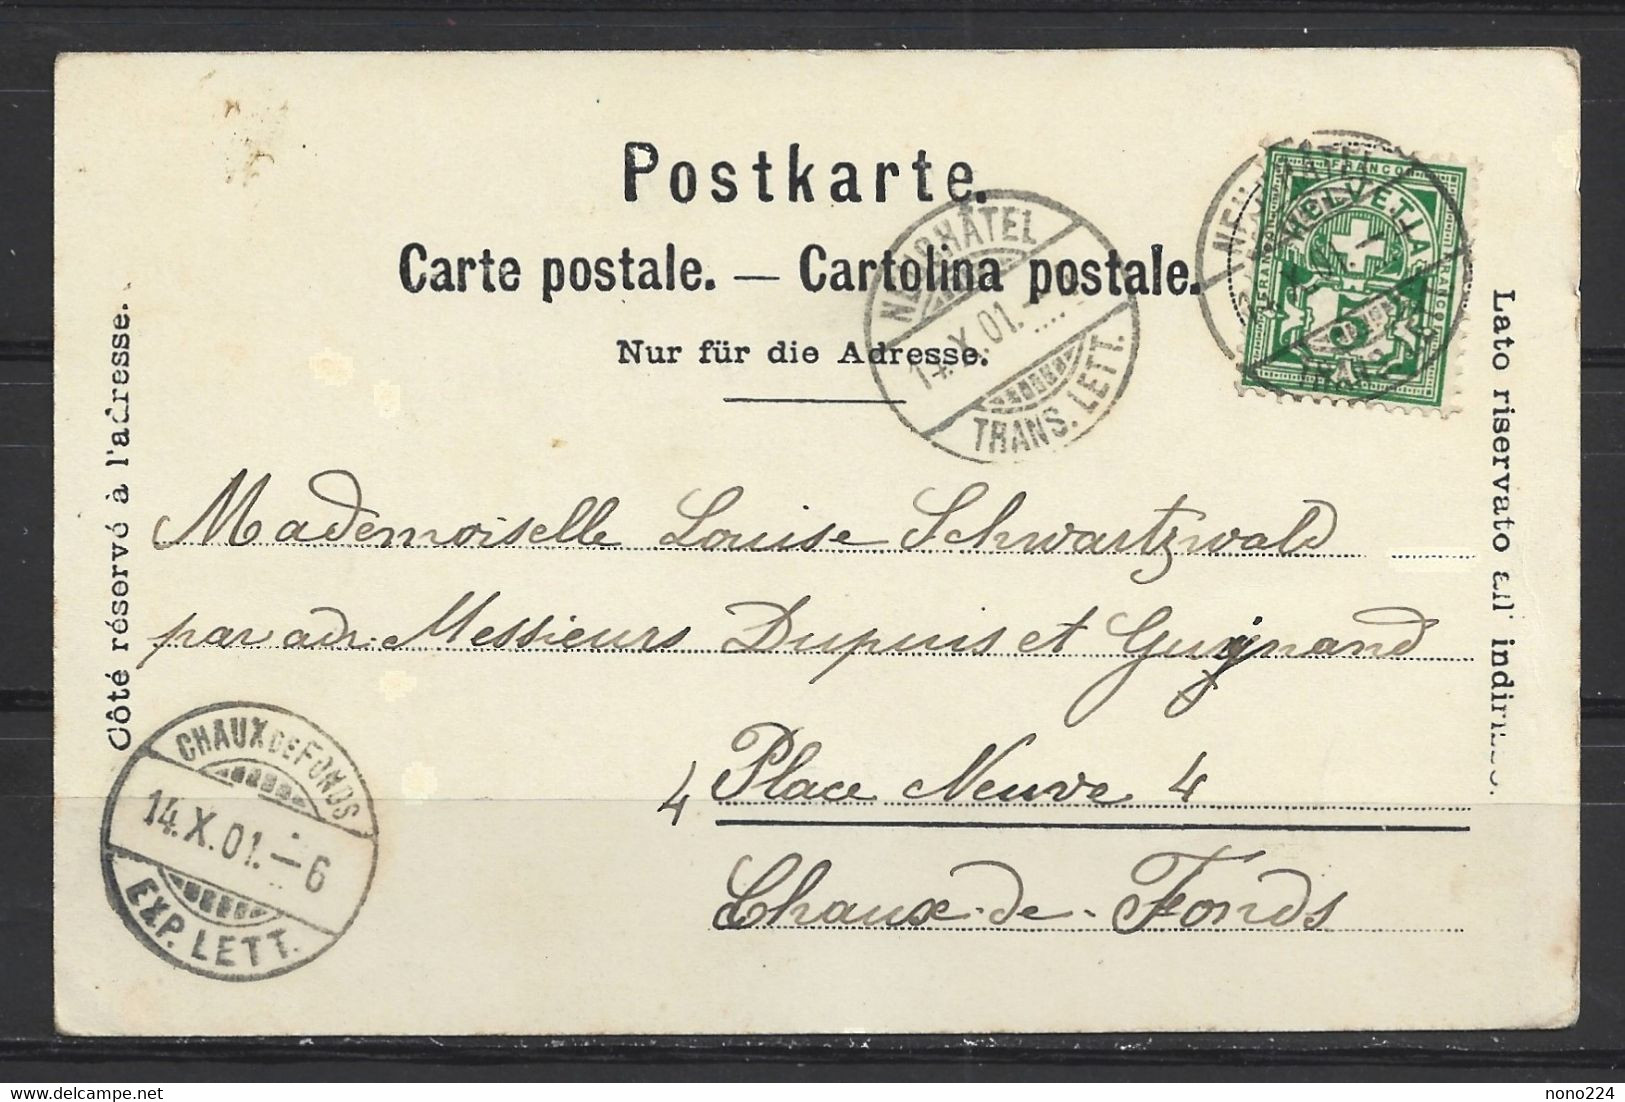 Postkarte.
Carte postale. — Cartolina postale.
Nur für die Adresse.
Côté réservé à l'adresse.
Lato riservato all' indirizzo.
FRANCO
HELVETIA
FRANCO
FRANCO
5
NEUCHÂTEL
NEUCHÂTEL
14.X.01.
TRANS. LETT.
Mademoiselle Louise Schwartzwald
par adr. Messieurs Dupuis et Guignand
4 Place Neuve 4
Chaux-de-Fonds
CHAUX DE FONDS
14.X.01.–6
EXP. LETT.
www.delcampe.net
nono224